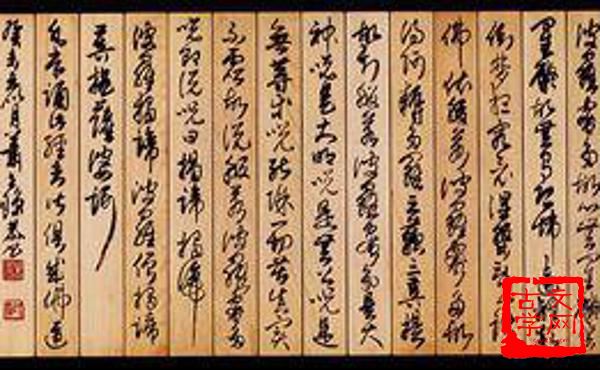 波羅蜜多故心無罣礙無
罣礙故無有恐怖遠離顛
倒夢想究竟涅槃三世諸
佛依般若波羅蜜多故
得阿耨多羅三藐三菩提
故知般若波羅蜜多是大
神咒是大明咒是無上咒是
無等等咒能除一切苦真實
不虛故說般若波羅蜜多
咒即說咒曰揭諦揭諦
波羅揭諦波羅僧揭諦
菩提薩婆訶
誦此經者皆俱成佛道
癸未春月蕭
古文
学网